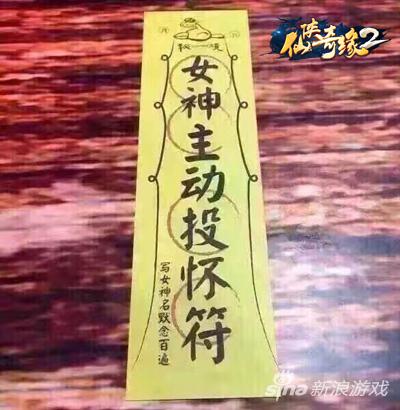 仙侠奇缘2
女神主动投怀符
写女神名默念百遍
sina新浪游戏